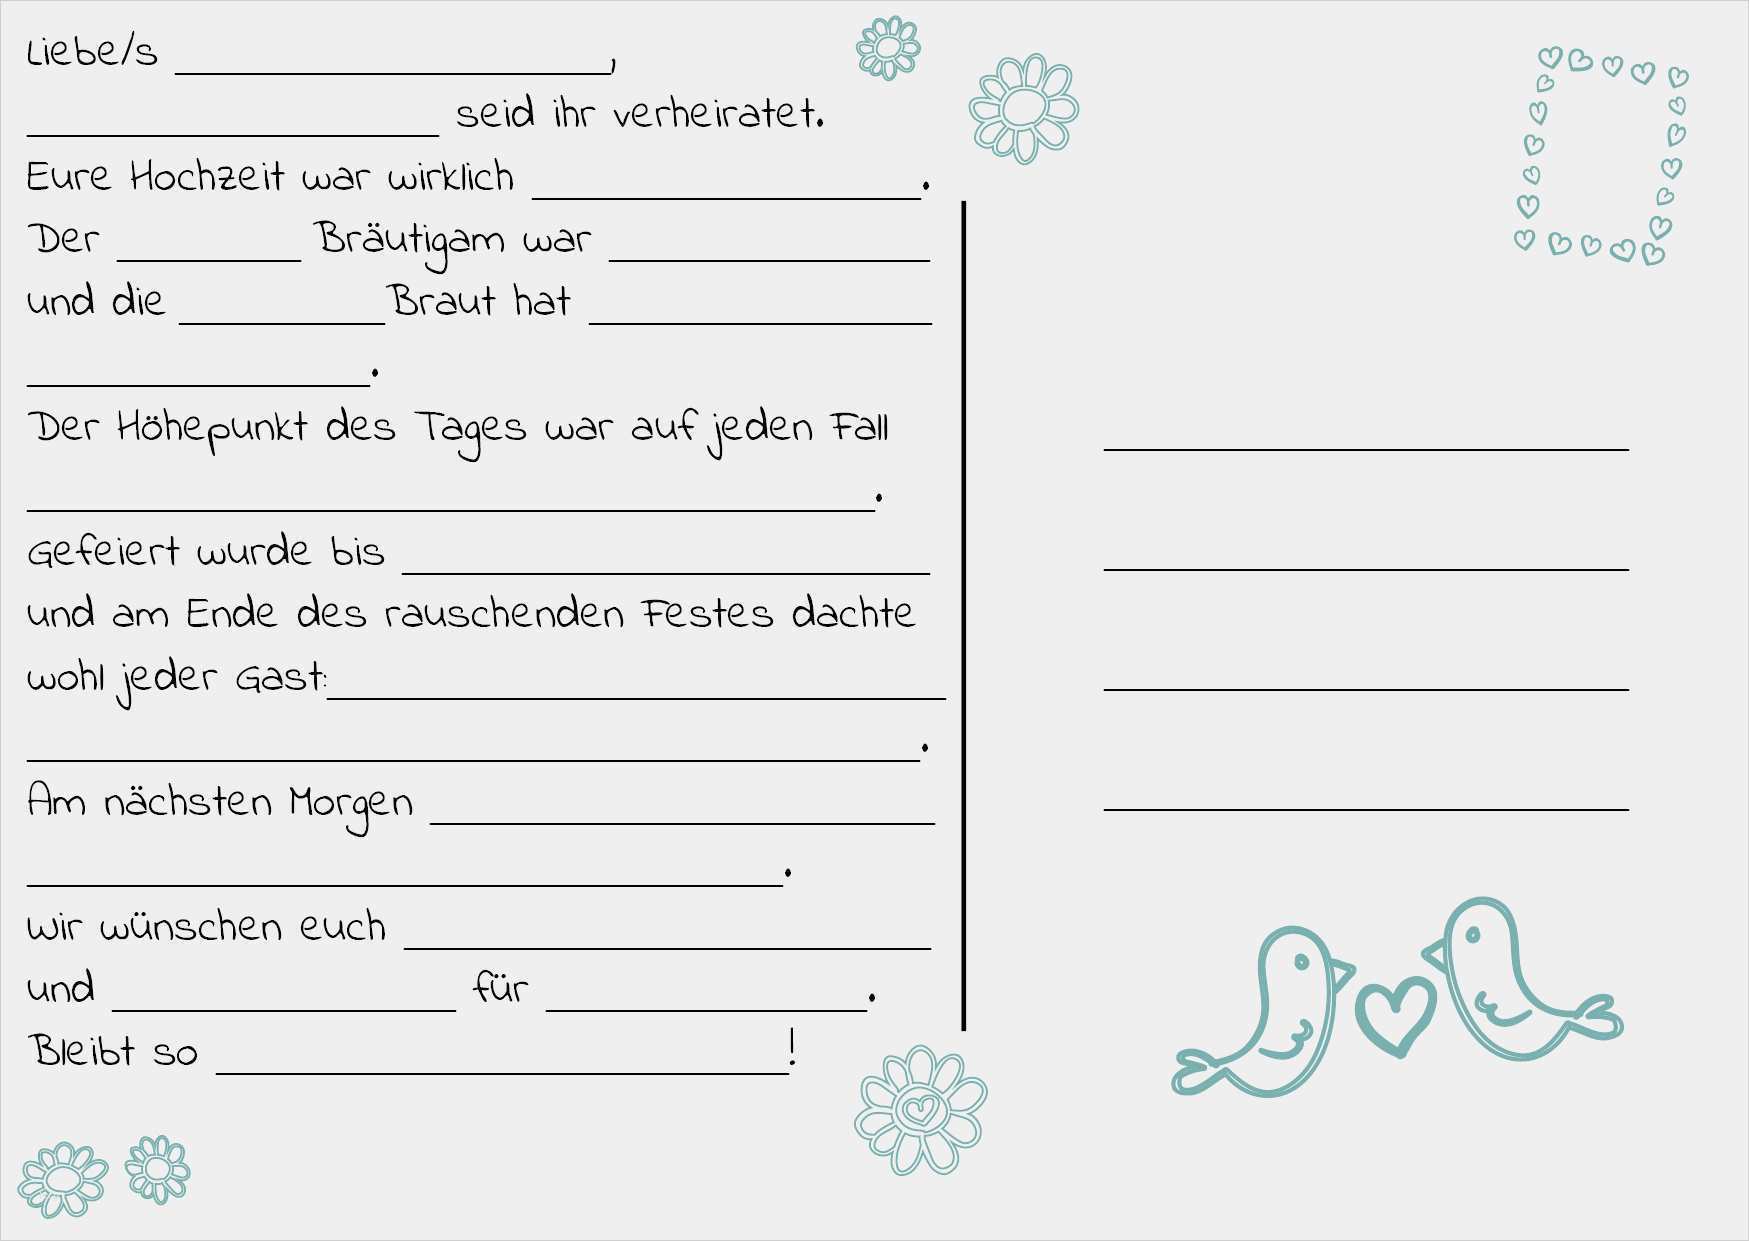 Liebe/s ____________________,
____________________ seid ihr verheiratet.
Eure Hochzeit war wirklich __________________.
Der ________ Bräutigam war ______________
und die _________ Braut hat _______________
_______________.
Der Höhepunkt des Tages war auf jeden Fall
______________________________________.
Gefeiert wurde bis _______________________
und am Ende des rauschenden Festes dachte
wohl jeder Gast:___________________________
________________________________________.
Am nächsten Morgen ______________________
__________________________________.
Wir wünschen euch _______________________
und _______________ für ______________.
Bleibt so _________________________!